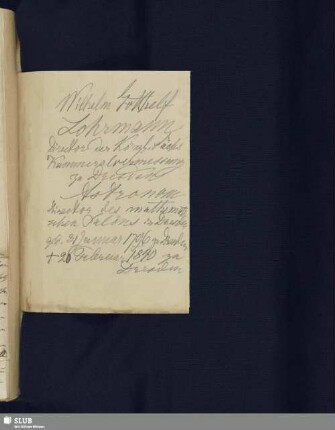 Wilhelm Gotthelf
Lohrmann
Director der Königl. Sächs
Kammeralvermessung
zu Dresden
Astronom
Director des mathemat
schen Salons in Dresden
geb. 31 Januar 1796 zu Dresden
+ 20 Februar 1840 zu
Dresden
SLUB
Wir führen Wissen.